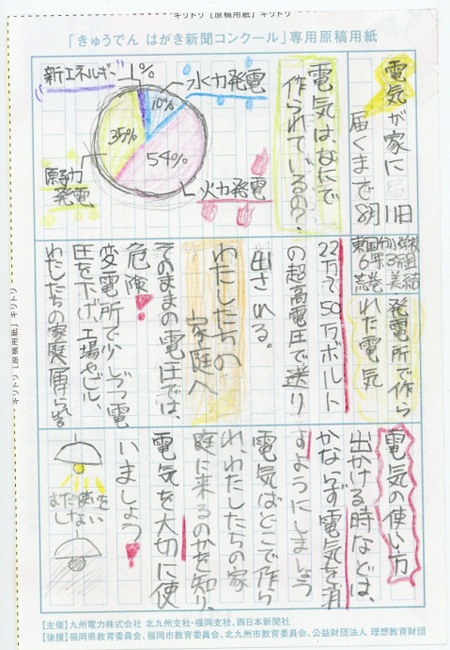 キリトリ【原稿用紙】キリトリ
「きゅうでん はがき新聞コンクール」専用原稿用紙
電気が家に
届くまで
8月
1日
電気は、なにで
作られているの？
新エネルギー
1%
水力発電
10%
35%
54%
原子力
発電
火力発電
小学校
発電所で作ら
れた電気
22万〜50万ボルト
の超高電圧で送り
出される。
わたしたちの
家庭へ
そのままの電圧では、
危険！
変電所で少しづつ電
圧を下げ、工場やビル、
わたしたちの家庭へ届けられる
電気の使い方
出かける時などは、
かならず電気を消
すようにしましょう
電気はどこで作ら
れ、わたしたちの家
庭に来るのかを知り、
電気を大切に使
いましょう！
むだ使いを
しない
キリトリ【原稿用紙】キリトリ
【主催】九州電力株式会社 北九州支社・福岡支社、西日本新聞社
【後援】福岡県教育委員会、福岡市教育委員会、北九州市教育委員会、公益財団法人 理想教育財団